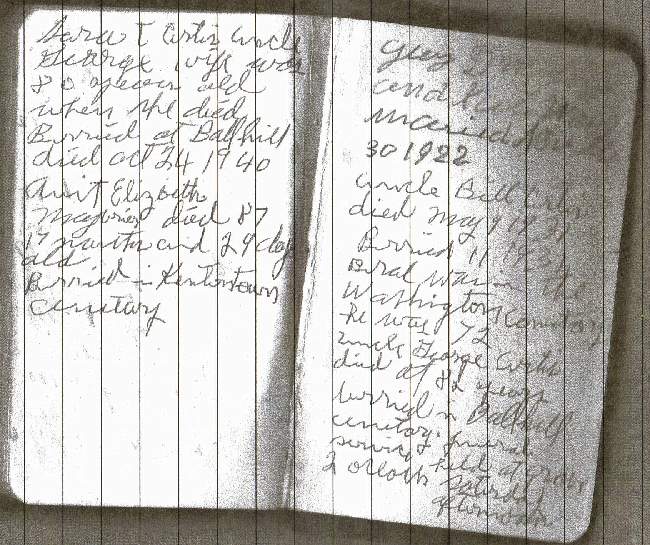 Sara T Curtis Uncle
George wife was
80 years old
when she died
Burried at Ball hill
died oct 24 1940
Aunt Elizbeth
died 87
months and 29 day
old
Burried in Kentontown
cemetary
Guy
and
married
30 1922
uncle Bill Curtis
died May 9 1931
Burried 11 1931
Bural was in the
Washington Cemetary
he was 72
uncle George Curtis
died at 82 years
burried in Ball hill
cemetary funeral
services held at
2 oclock saturday
afternoon